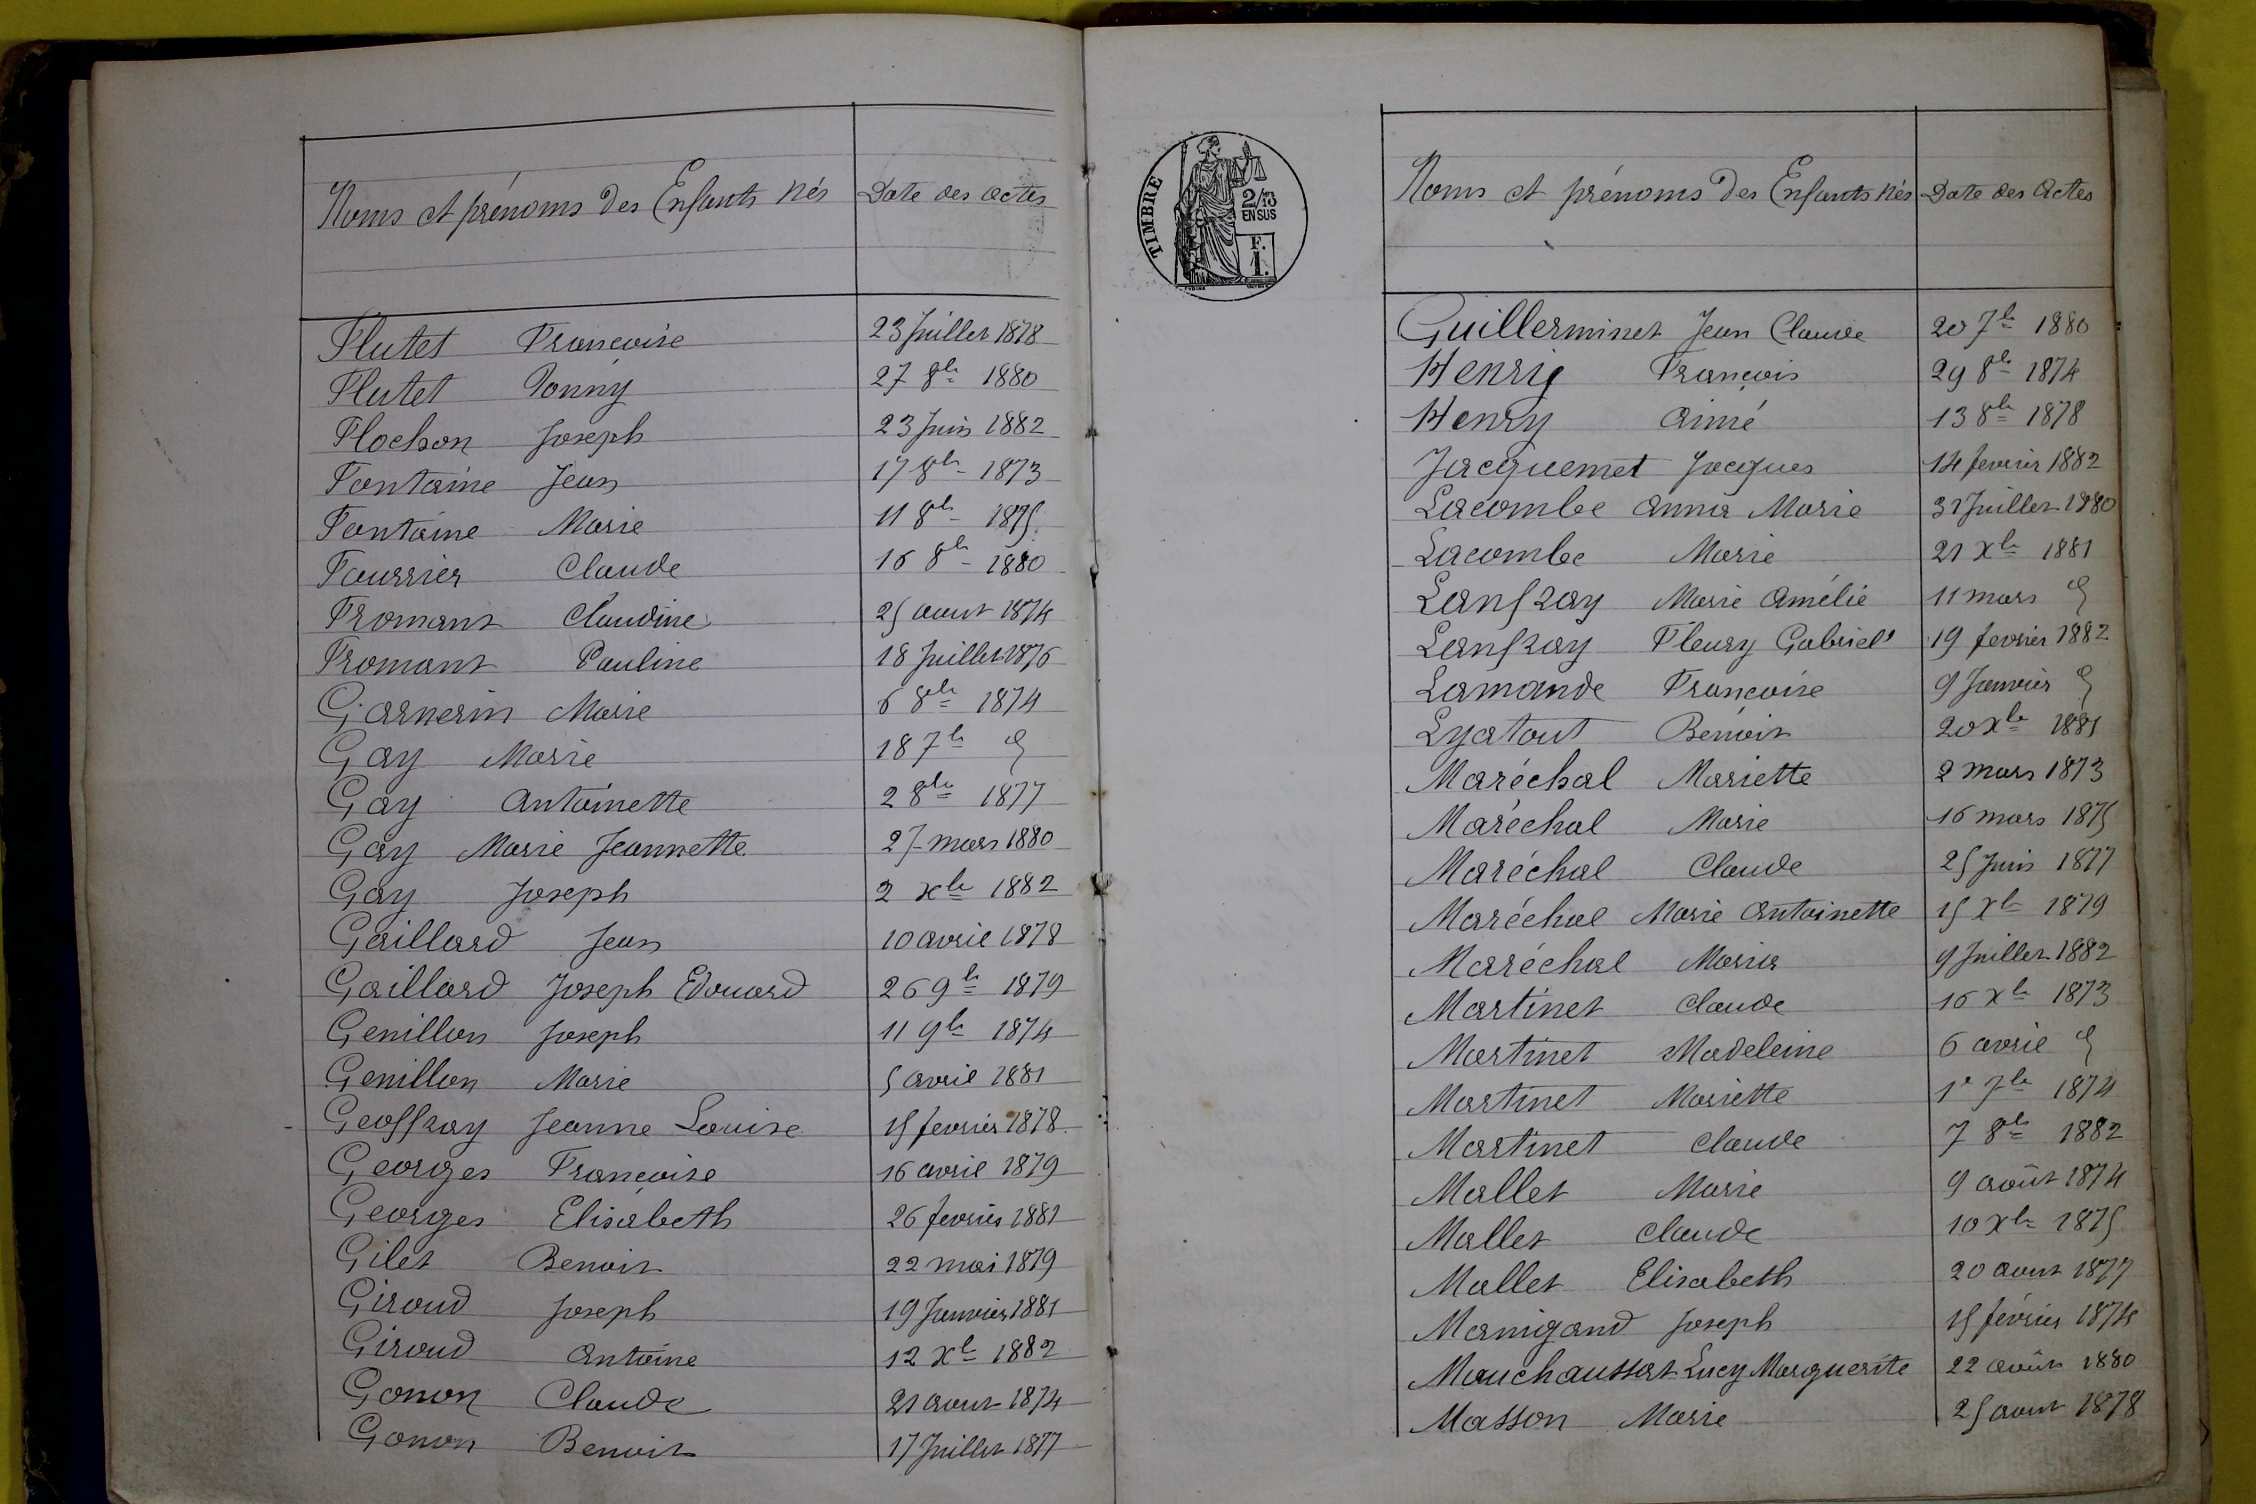 Noms et prénoms des Enfants nés Date des actes
Flutet Françoise 23 Juillet 1878
Flutet Fonny 27 8bre 1880
Flochon Joseph 23 Juin 1882
Fontaine Jean 17 8bre 1873
Fontaine Marie 11 8bre 1875
Fourrier Claude 16 8bre 1880
Fromant Claudine 25 aout 1874
Fromant Pauline 18 Juillet 1876
Garnerin Marie 6 8bre 1874
Gay Marie 18 7bre d
Gay Antoinette 2 8bre 1877
Gay Marie Jeannette 27 mars 1880
Gay Joseph 2 Xbre 1882
Gaillard Jean 10 avril 1878
Gaillard Joseph Edouard 26 9bre 1879
Genillon Joseph 11 9bre 1874
Genillon Marie 5 avril 1881
Geoffray Jeanne Louise 15 fevrier 1878
Georges Françoise 16 avril 1879
Georges Elisabeth 26 fevrier 1881
Gilet Benoit 22 mai 1879
Giroud Joseph 19 Janvier 1881
Giroud Antoine 12 Xbre 1882
Gonon Claude 21 aout 1874
Gonon Benoit 17 Juillet 1877
TIMBRE
2/13
EN SUS
F.
1.
Noms et prénoms des Enfants nés Date des Actes
Guillerminet Jean Claude 20 7bre 1880
Henry François 29 8bre 1874
Henry Aimé 13 8bre 1878
Jacquemet Jacques 14 fevrier 1882
Lacombe Anna Marie 31 Juillet 1880
Lacombe Marie 21 Xbre 1881
Lanfray Marie Amélie 11 mars d
Lanfray Fleury Gabriel 19 fevrier 1882
Lamande Françoise 9 Janvier d
Lyatout Benoit 20 Xbre 1881
Maréchal Mariette 2 mars 1873
Maréchal Marie 16 mars 1875
Maréchal Claude 25 Juin 1877
Maréchal Marie Antoinette 15 Xbre 1879
Maréchal Maria 9 Juillet 1882
Martinet Claude 16 Xbre 1873
Martinet Madeleine 6 avril d
Martinet Mariette 1er 7bre 1874
Martinet Claude 7 8bre 1882
Mallet Marie 9 août 1874
Mallet Claude 10 Xbre 1875
Mallet Elisabeth 20 aout 1877
Manigand Joseph 15 février 1874
Mauchaussat Lucy Marguerite 22 août 1880
Masson Marie 25 aout 1878